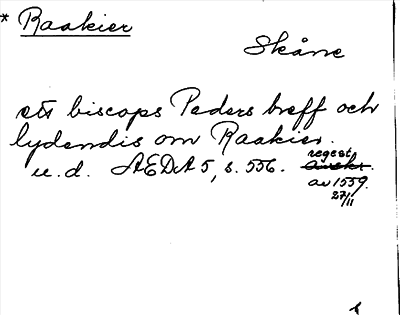 * Raakier
Skåne
ett biscops Peders breff och
lydendis om Raakier.
u.d. ÆDA 5, s. 556. regest
av 1559.
27/11